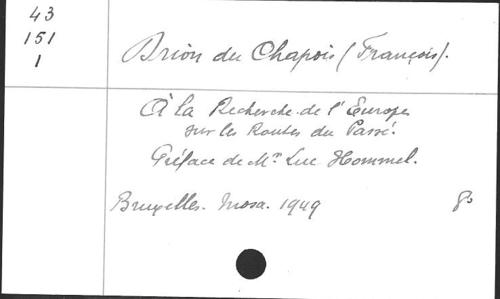 43
151
1
Brion du Chapois (François).
À la Recherche de l'Europe
sur les Routes du Passé.
Préface de Mr Luc Hommel.
Bruxelles. Mosa. 1949 8o